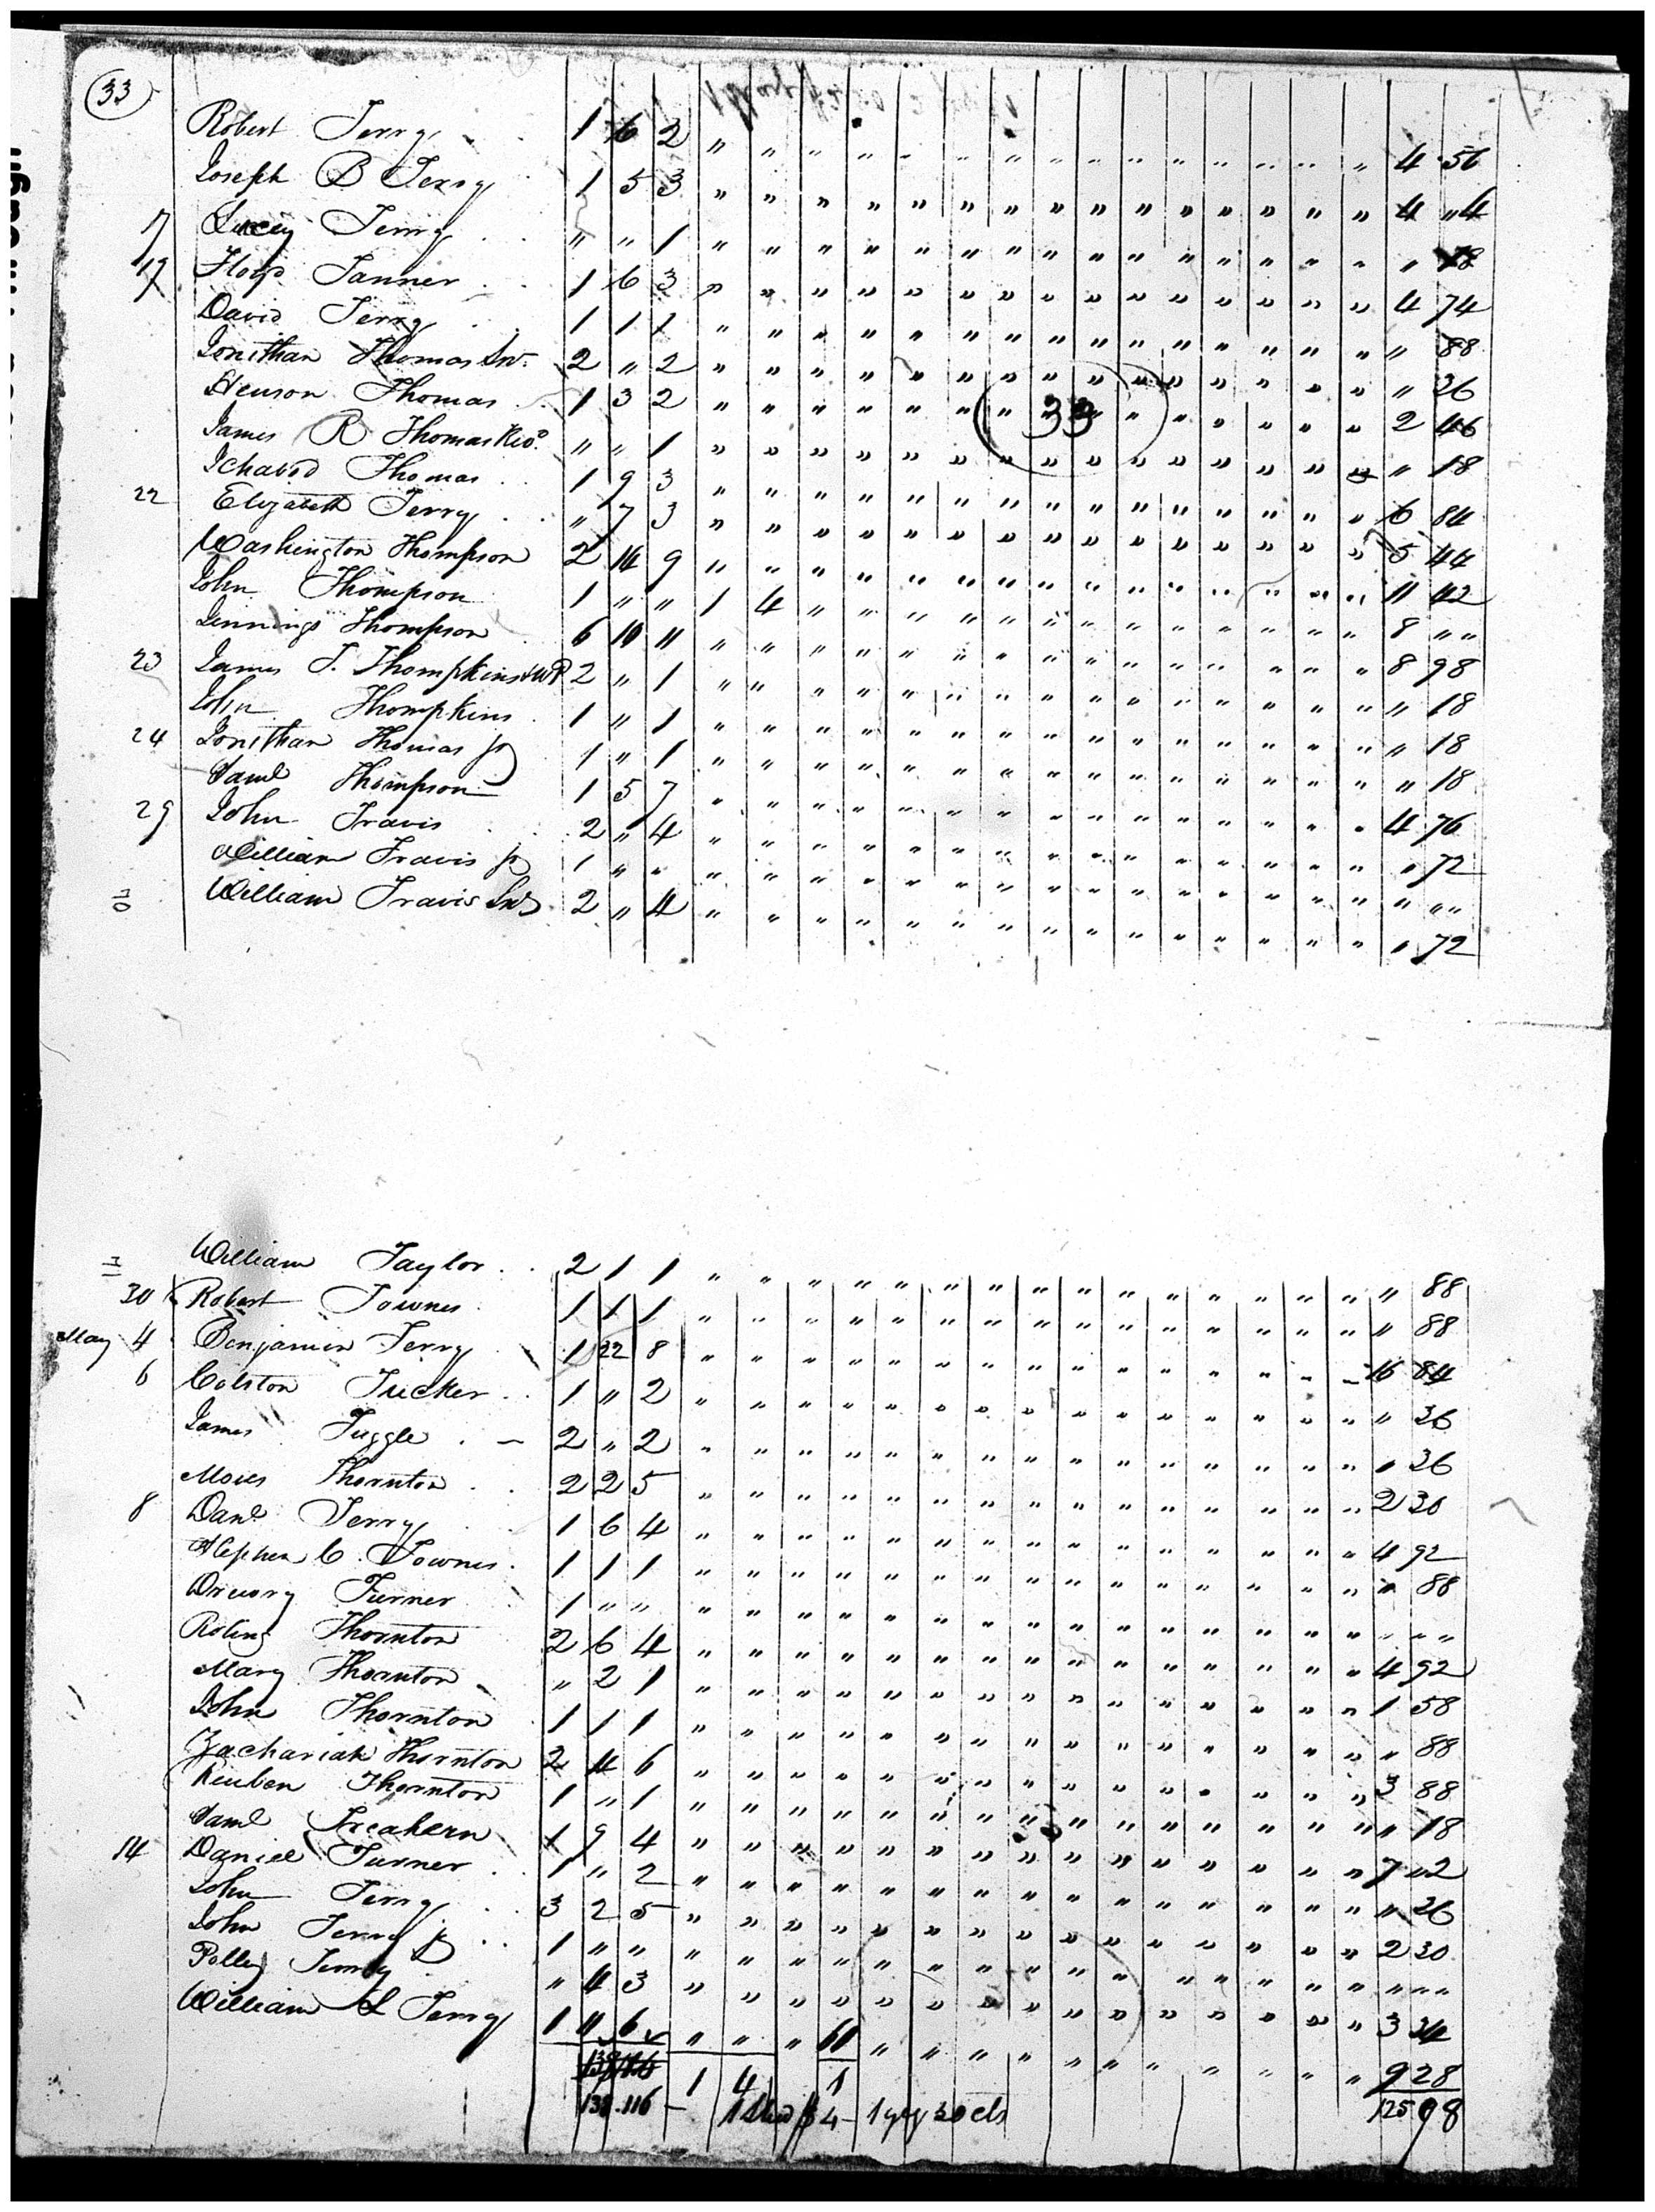 33
Robert Terry 1 6 2 " " " " " " " " " " " " " " " 4 56
Joseph B Terry 1 5 3 " " " " " " " " " " " " " " " 4 "4
17 Lucy Terry " " 1 " " " " " " " " " " " " " " " " 18
19 Floyd Tanner 1 6 3 " " " " " " " " " " " " " " " 4 74
David Terry 1 1 1 " " " " " " " " " " " " " " " " 88
Jonithan Thomas Snr 2 " 2 " " " " " " " " " " " " " " " " 36
Henson Thomas 1 3 2 " " " " " " " " " " " " " " " 2 46
33
James R Thomas " " 1 " " " " " " " " " " " " " " " " 18
Ichabod Thomas 1 9 3 " " " " " " " " " " " " " " " 6 84
22 Elizabeth Terry " 7 3 " " " " " " " " " " " " " " " 5 44
Washington Thompson 2 14 9 " " " " " " " " " " " " " " " 11 42
John Thompson 1 " " 1 4 " " " " " " " " " " " " " 8 " "
Jennings Thompson 6 10 11 " " " " " " " " " " " " " " " 8 98
23 James T. Thompkins 2 " 1 " " " " " " " " " " " " " " " " 18
John Thompkins 1 " 1 " " " " " " " " " " " " " " " " 18
24 Jonithan Thomas jr 1 " 1 " " " " " " " " " " " " " " " " 18
Saml Thompson 1 5 7 " " " " " " " " " " " " " " " 4 76
29 John Travis 2 " 4 " " " " " " " " " " " " " " " " 72
William Travis jr 1 " " " " " " " " " " " " " " " " " " " "
William Travis Snr 2 " 4 " " " " " " " " " " " " " " " " 72
William Taylor 2 1 1 " " " " " " " " " " " " " " " " 88
30 Robert Townes 1 1 1 " " " " " " " " " " " " " " " " 88
May 4 Benjamin Terry 1 22 8 " " " " " " " " " " " " " " " 16 84
6 Colston Tucker 1 " 2 " " " " " " " " " " " " " " " " 36
James Tuggle 2 " 2 " " " " " " " " " " " " " " " " 36
Moses Thornton 2 2 5 " " " " " " " " " " " " " " " 2 30
8 Danl Terry 1 6 4 " " " " " " " " " " " " " " " 4 92
Stephen C. Townes 1 1 1 " " " " " " " " " " " " " " " " 88
Drewory Turner 1 " " " " " " " " " " " " " " " " " " " "
Roling Thornton 2 6 4 " " " " " " " " " " " " " " " 4 92
Mary Thornton " 2 1 " " " " " " " " " " " " " " " 1 58
John Thornton 1 1 1 " " " " " " " " " " " " " " " " 88
Zachariah Thornton 2 4 6 " " " " " " " " " " " " " " " 3 88
Reuben Thornton 1 " 1 " " " " " " " " " " " " " " " " 18
Saml Treahern 1 9 4 " " " " " " " " " " " " " " " 7 "2
14 Daniel Turner 1 " 2 " " " " " " " " " " " " " " " " 36
John Terry 3 2 5 " " " " " " " " " " " " " " " 2 30
John Terry jr 1 " " " " " " " " " " " " " " " " " " " "
Polley Terry " 4 3 " " " " " " " " " " " " " " " 3 34
William L Terry 1 11 6 " " " " " " " " " " " " " " 9 28
138 116 1 4 1 125 98